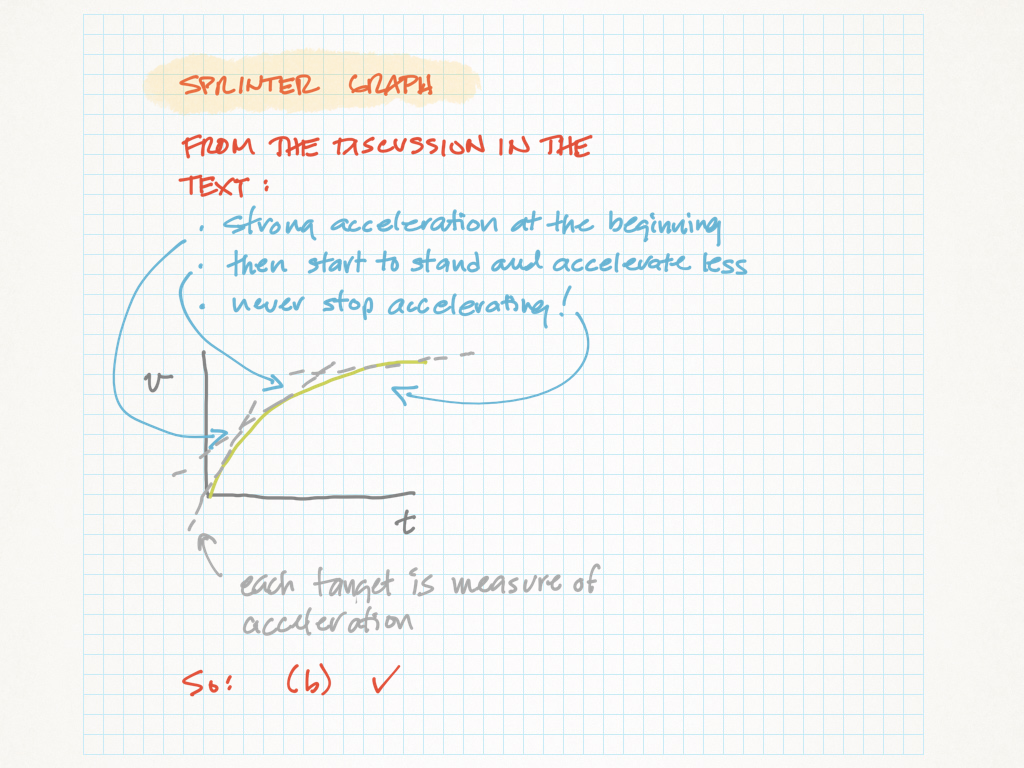 SPRINTER GRAPH
FROM THE DISCUSSION IN THE
TEXT:
• strong acceleration at the beginning
• then start to stand and accelerate less
• never stop accelerating!
v
t
each tanget is measure of
acceleration
So: (b) ✓